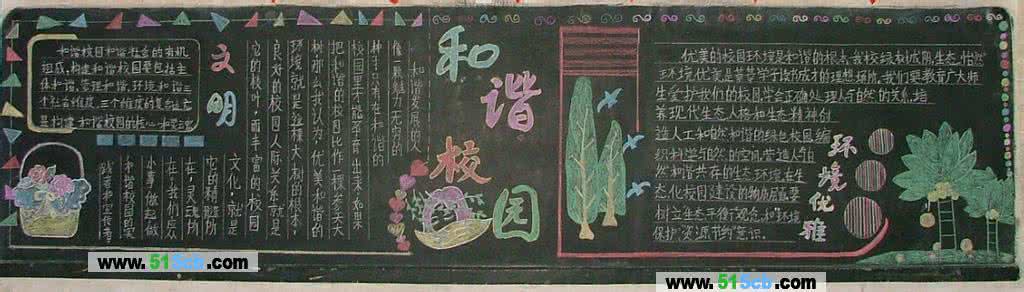 和谐校园
文明
和谐校园和谐社会的有机
组成,构建和谐校园要包括主
体和谐、管理和谐、环境和谐三
个社会维度,三个维度的复合
是构建和谐校园的核心
和谐发展的人
像一颗魅力无穷的
种子只有在和谐的
校园里才能孕育出来如果
把和谐的校园比作一棵参天大
树那么我认为,优美和谐的
环境就是这棵大树的根本,
良好的校园人际关系就是
它的枝叶,而丰富的校园
文化就是
它的精髓所
在,灵魂所
在,我们应从
小事做起做
和谐校园的实
践者和宣传者
环境优雅
优美的校园环境是和谐的根本,我校绿树成荫,生态怡然
环境优美是莘莘学子读书成才的理想场所,我们要教育广大师
生爱护我们的校园,学会正确处理人与自然的关系,培
养现代生态人格和生态精神创
造人工和自然和谐的绿色校园编
织科学与自然的空间,营造人与自
然和谐共存的生态环境,在生
态化校园建设的物质层面要
树立生态平衡观念,和环境
保护、资源节约意识.
www.515cb.com
www.515cb.com